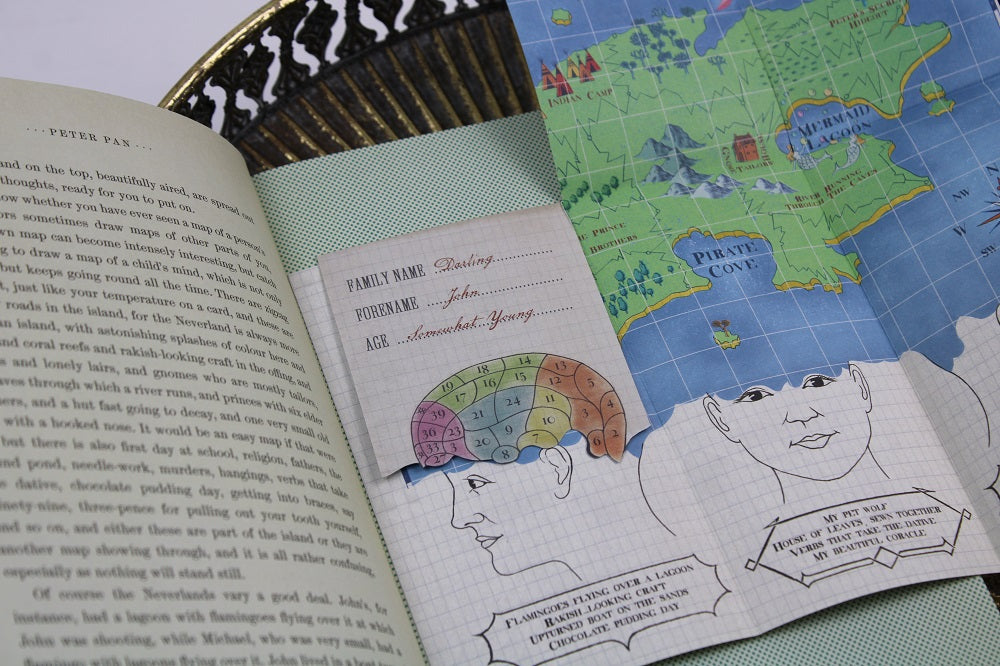 ... PETER PAN ...
and on the top, beautifully aired, are spread out
thoughts, ready for you to put on.
now whether you have ever seen a map of a person's
ors sometimes draw maps of other parts of you,
wn map can become intensely interesting, but catch
g to draw a map of a child's mind, which is not only
but keeps going round all the time. There are zigzag
t, just like your temperature on a card, and these are
roads in the island, for the Neverland is always more
an island, with astonishing splashes of colour here and
nd coral reefs and rakish-looking craft in the offing, and
s and lonely lairs, and gnomes who are mostly tailors,
aves through which a river runs, and princes with six elder
hers, and a hut fast going to decay, and one very small old
with a hooked nose. It would be an easy map if that were
but there is also first day at school, religion, fathers, the
und pond, needle-work, murders, hangings, verbs that take
e dative, chocolate pudding day, getting into braces, say
inety-nine, three-pence for pulling out your tooth yourself,
nd so on, and either these are part of the island or they are
another map showing through, and it is all rather confusing,
especially as nothing will stand still.
Of course the Neverlands vary a good deal. John's, for
instance, had a lagoon with flamingoes flying over it at which
John was shooting, while Michael, who was very small, had a
flamingo with lagoons flying over it. John lived in a boat
FAMILY NAME Darling
FORENAME John
AGE Somewhat Young
19 18 14 13
17 16 15 12 5
39 21 24 11 4
36 23 20 9 10 3
33 3 8 7 6 2
2
FLAMINGOES FLYING OVER A LAGOON
RAKISH-LOOKING CRAFT
UPTURNED BOAT ON THE SANDS
CHOCOLATE PUDDING DAY
MY PET WOLF
HOUSE OF LEAVES, SEWN TOGETHER
VERBS THAT TAKE THE DATIVE
MY BEAUTIFUL CORACLE
PETER'S SECRET
HIDEOUT
INDIAN CAMP
MERMAID
LAGOON
GNOME
TAILORS
RIVER RUNNING
THROUGH THE CAVES
THE PRINCE
BROTHERS
PIRATE
COVE
NW
W
SW